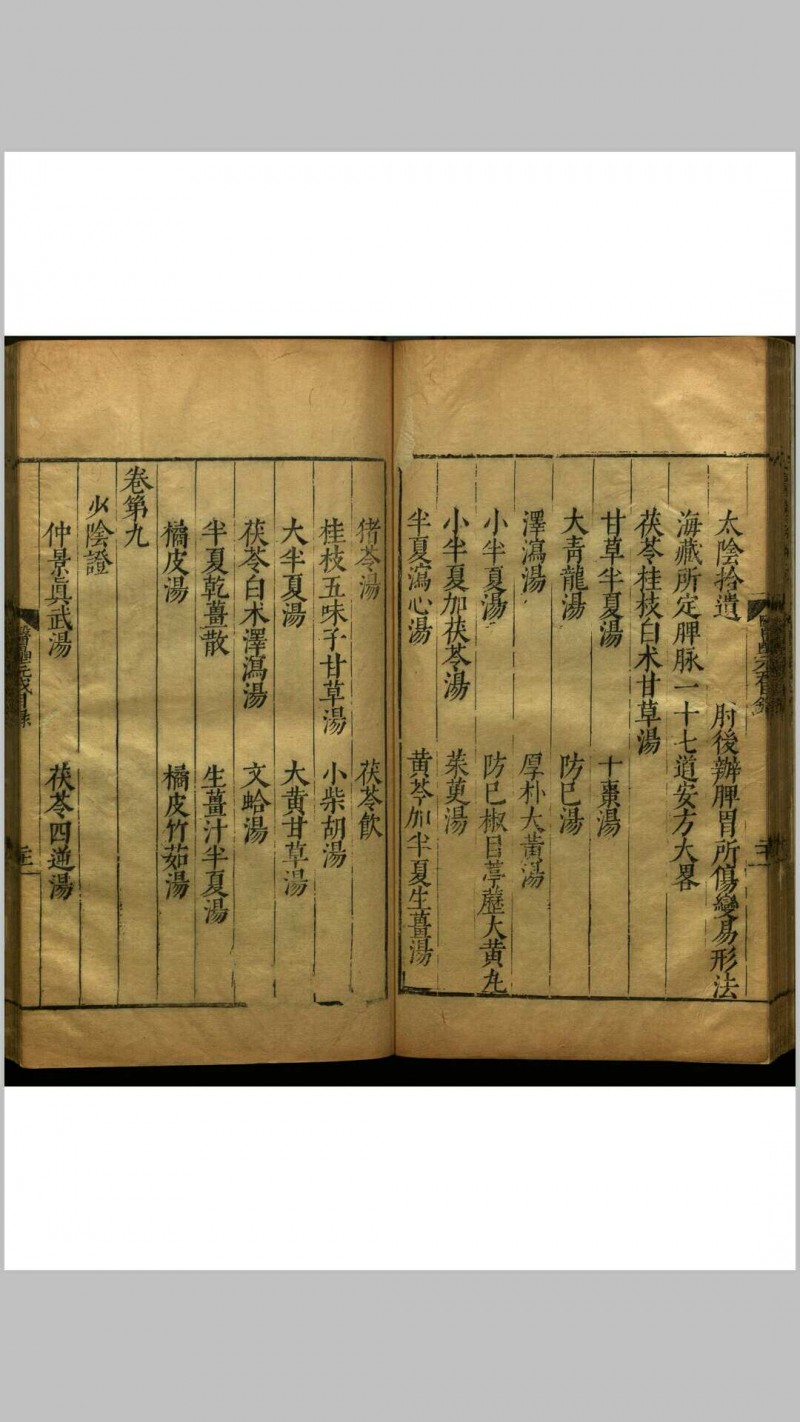 太陰拾遺　肘後辦脾胃所傷變易形法
海藏所定脾脉一十七道安方大畧
茯苓桂枝白术甘草湯
甘草半夏湯　十棗湯
大青龍湯　防已湯
澤瀉湯　厚朴大黃湯
小半夏湯　防已椒目葶藶大黃丸
小半夏加茯苓湯　茱萸湯
半夏瀉心湯　黃芩加半夏生薑湯
猪苓湯　茯苓飲
桂枝五味子甘草湯　小柴胡湯
大半夏湯　大黃甘草湯
茯苓白术澤瀉湯　文蛤湯
半夏乾薑散　生薑汁半夏湯
橘皮湯　橘皮竹茹湯
卷第九
少陰證
仲景眞武湯　茯苓四逆湯